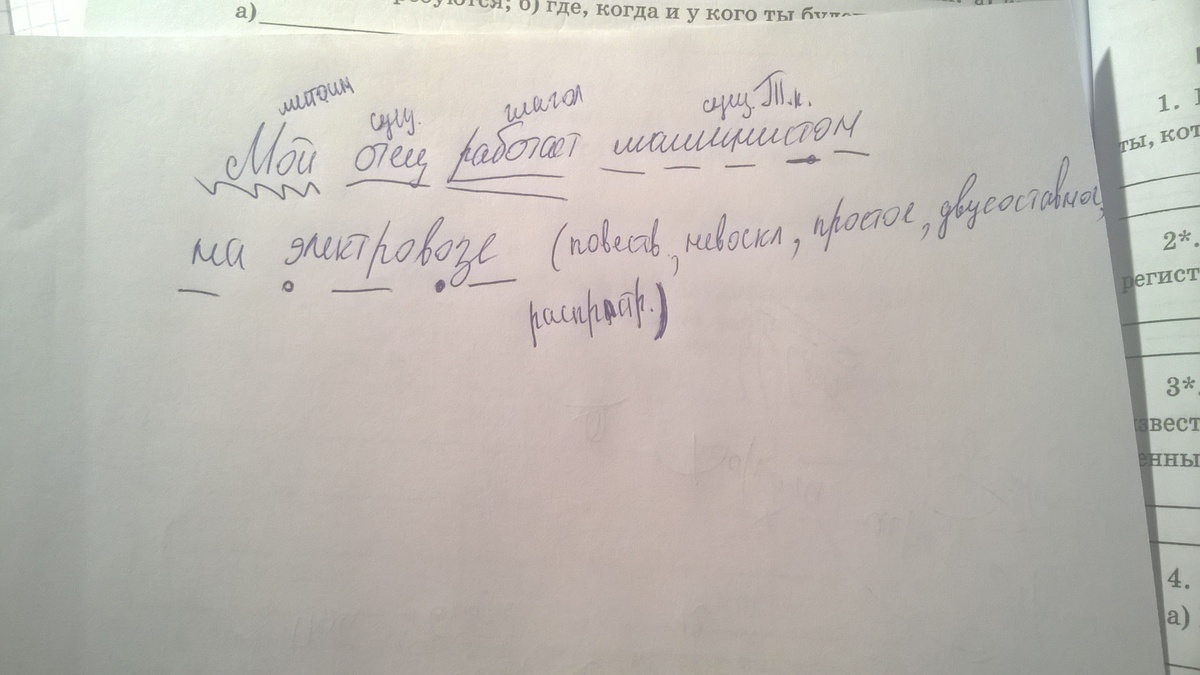 а)
; б) где, когда и у кого ты
местоим
сущ. глагол сущ. Т.п.
Мой отец работает машинистом
на электровозе (повеств., невоскл, простое, двусоставное,
распростр.)
1.
ты, кот
2*.
регист
3*.
звест
енны
4.
а)